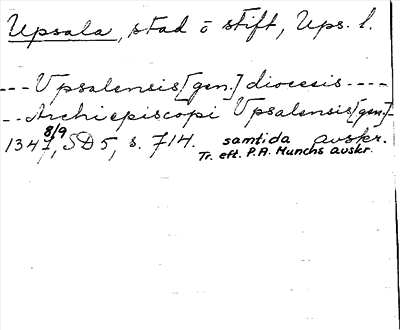 Upsala, stad o stift, Ups. l.
--- Upsalensis [gen.] diocesis ----
-- Archiepiscopi Upsalensis [gen.] -
1347 8/9, SD 5, s. 714. samtida avskr.
Tr. eft. P.A. Munchs avskr.